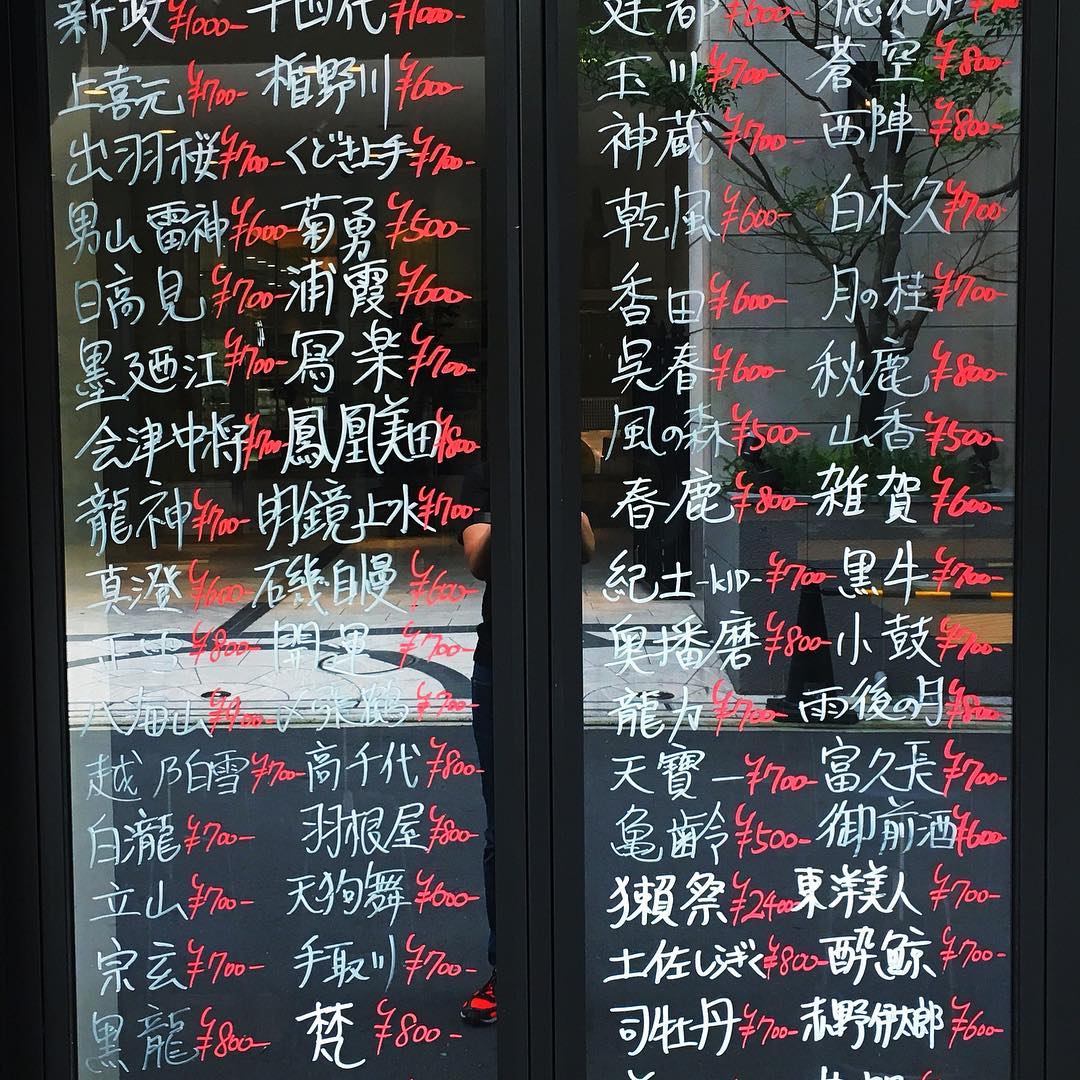 新政 ¥1000- 十四代 ¥1000-
上喜元 ¥700- 楯野川 ¥600-
出羽桜 ¥700- くどき上手 ¥700-
男山 雷神 ¥600- 菊勇 ¥500-
日高見 ¥700- 浦霞 ¥600-
墨廼江 ¥700- 寫楽 ¥700-
会津中将 ¥700- 鳳凰美田 ¥800-
龍神 ¥700- 明鏡止水 ¥700-
真澄 ¥600- 磯自慢 ¥600-
正雪 ¥800- 開運 ¥700-
八海山 〆張鶴 ¥700-
越乃白雪 ¥700- 高千代 ¥800-
白瀧 ¥700- 羽根屋 ¥800-
立山 ¥700- 天狗舞 ¥600-
宗玄 ¥700- 手取川 ¥700-
黒龍 ¥800- 梵 ¥800-
建都 ¥600-
玉川 ¥700- 蒼空 ¥800-
神蔵 ¥700- 西陣 ¥800-
乾風 ¥600- 白木久 ¥700-
香田 ¥600- 月の桂 ¥700-
呉春 ¥600- 秋鹿 ¥800-
風の森 ¥500- 山香 ¥500-
春鹿 ¥800- 雑賀 ¥600-
紀土-KID- ¥700- 黒牛 ¥700-
奥播磨 ¥800- 小鼓 ¥700-
龍力 ¥700- 雨後の月 ¥800-
天寶一 ¥700- 富久長 ¥700-
亀齢 ¥500- 御前酒 ¥600-
獺祭 ¥2400 東洋美人 ¥700-
土佐しらぎく ¥800- 酔鯨 ¥700-
司牡丹 ¥700- 赤野伊太郎 ¥600-